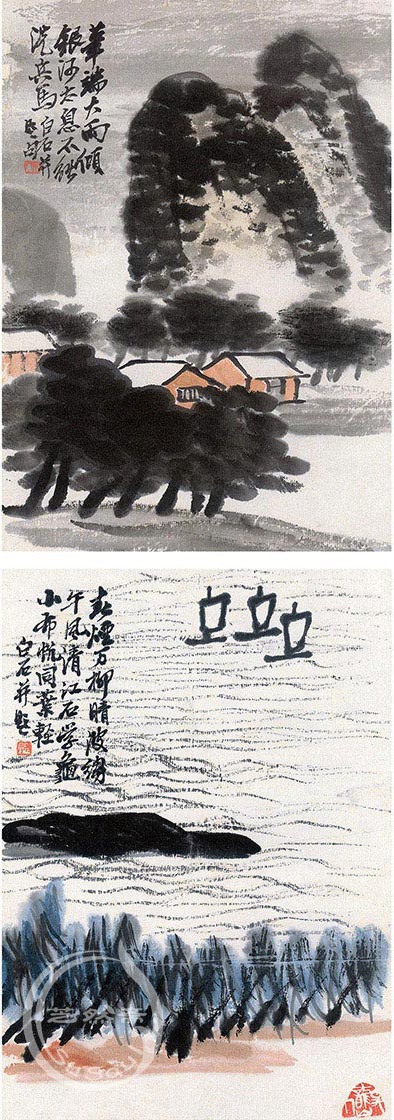 筆端大雨傾
銀河太息不能
洗兵馬白石并
春煙万柳晴波
午風清江石學龜
小布帆同葉輕
白石并題